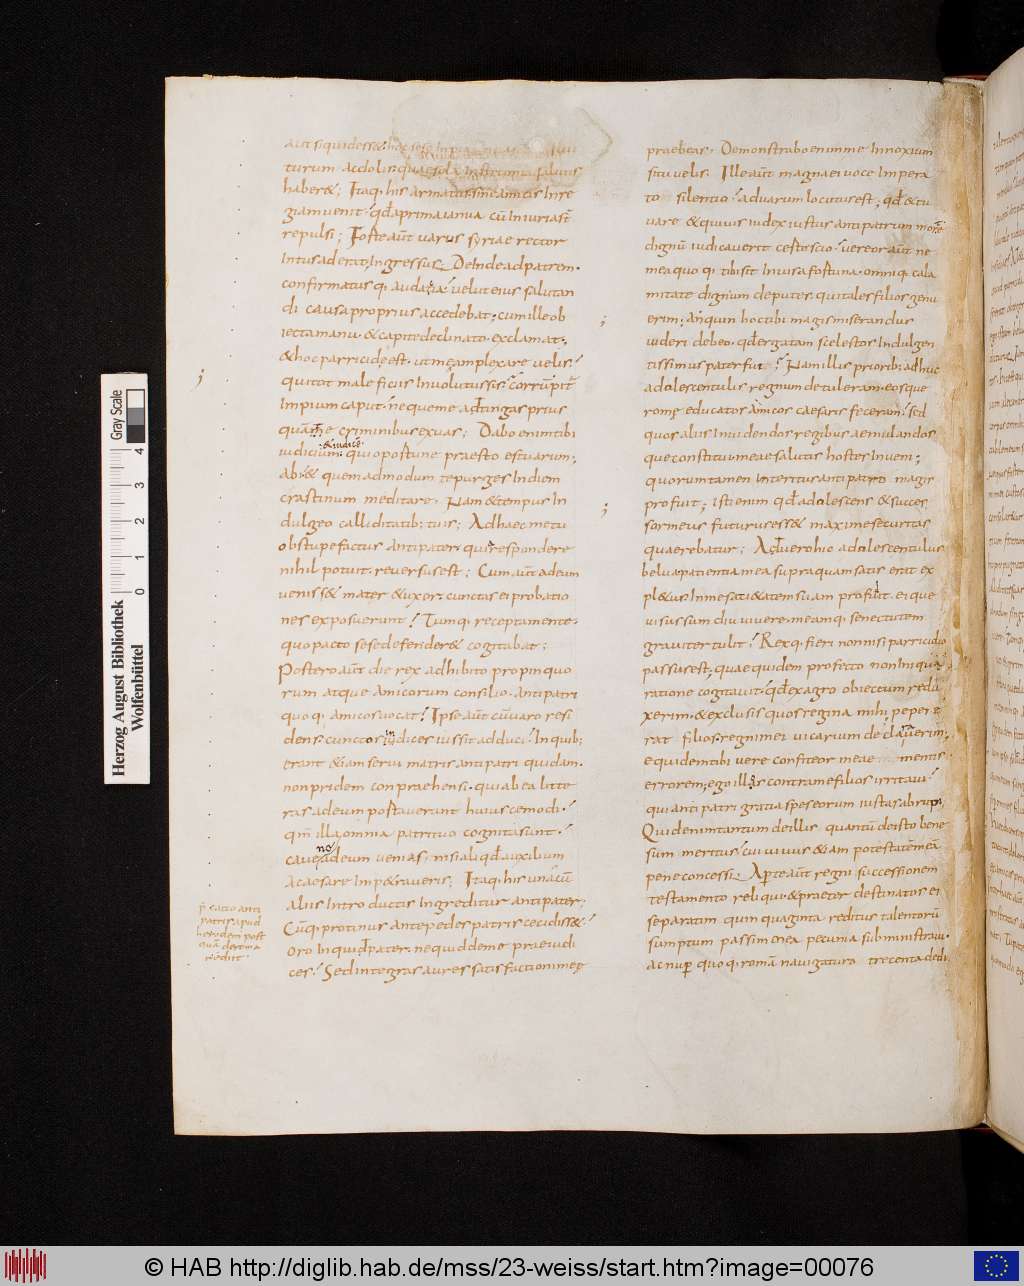 aut siquidesset hoc sese
turum ac dolis quae sola
habere; Itaq; his armatus sine amicis In re
giam uenit· qđ aprima ianua cū Iniuria st̄
repulsi; Foste aūt uarus syriae rector
Intus aderat, Ingressus, Deinde ad patrem·
confirmatus q; audatia uelut eius salutan
di causa proprius accedebat; cum ille ob
iecta manu· & capite declinato· exclamat·,
& hoc parricidę est· ut męamplexare uelis·
qui tot maleficiis Inuolutus sis· corrūpit̄
Impium caput· neque me adtingas prius
quāme criminibus exuas; Dabo enim tibi
·& iudicē·
iudicium· qui opoſtune praesto est uarum;
abi· & quemadmodum te purges In diem
crastinum meditare· Nam & tempus In
dulgeo calliditatib; tuis; Adhaec metu
obstupefactus antipater· qui respondere
nihil potuit· reuersus est; Cum aūt ad eum
uenisset mater & uxor· cunctas ei probatio
nes exposuerunt· Tumq; recepta mente·
quo pacto sese defenderet cogitabat;
Postero aūt die rex adhibito propinquo
rum atque amicorum consilio· antipatri
quo q; amicos uocat· Ipse aūt cū uaro resi
dens· cunctos iudices iussit adduci· In quib;
erant etiam serui matris antipatri quidam·
non pridem conpraehensi· qui ab ea litte
ras ad eum postauerunt huiuscemodi·
qm̄ illa omnia patri tuo cognita sunt·
caue ne ad eum uenias· nisi aliqđ auxilium
a caesare Impetraueris; Itaq; his una cū
aliis Intro ductis Ingreditur antipater;
Cūq; protinus ante pedes patris cecidisset·
oro Inquid pater· ne quid de me praeiudi
ces· Sed integras aures satisfactioni meę
p̄satio anti
patris apud
herodem post
quā de roma
rediit·
praebeas· Demonstrabo enim me Innoxium
si tu uelis· Ille aūt magna ei uoce Impera
to silentio· ad uarum locutus est; qđ & tu
uare & quiuis iudex iustus antipatrum morte
dignū iudicauerit certo scio· uereor aūt ne
mea quo q; tibi sit Inuisa fortuna· omniq; cala
mitate dignum deputes· qui tales filios genu
erim; an̄quin hoc tibi magis miserandus
uideri debeo· qđ erga tam scelestos Indulgen
tissimus pater fui· Nam illis priorib; adhuc
adolescentulis regnum detuleram· eosque
rome educatos amicos caesaris feceram· sed
quos aliis Inuidendos regibus aemulandos
que constitui· meae salutis hostes Inueni;
quorum tamen Interitus antipatro magis
profuit; isti enim qđ adolescens & succes
sor meus futurus esset maxime securitas
quaerebatur; Ac uero hic adolescentulus
belua patientia mea supra quam satis erat ex
pletus In me satietatem suam profudit· ei que
uisus sum diu uiuere· meamq; senectutem
grauiter tulit· Rex q; fieri non nisi parricidio
passus est; quae quidem profecto non Iniqua
ratione cogitauit· qđ ex agro obiectum redu
xerim· & exclusis quos regina mihi pepere
rat filios· regni mei uicarium declarauerim;
equidem tibi uere confiteor meae mentis
errorem; ego illos contra me filios irritaui·
qui antipatri gratia spes eorum iustas abrupi;
Quid enim tantum de illis quantū de isto bene
sum meritus· cui uiuus etiam potestatē meā
pene concessi; Aperte aūt regni successionem
testamento reliqui· & praeter destinatos ei
separatim quinquaginta reditus talentorū
sumptum passim ex ea pecunia subministraui·
ac nup̄ quo q; romā nauigaturo trecenta dedi
Herzog August Bibliothek
Wolfenbüttel
0 1 2 3 4
Gray Scale
© HAB http://diglib.hab.de/mss/23-weiss/start.htm?image=00076